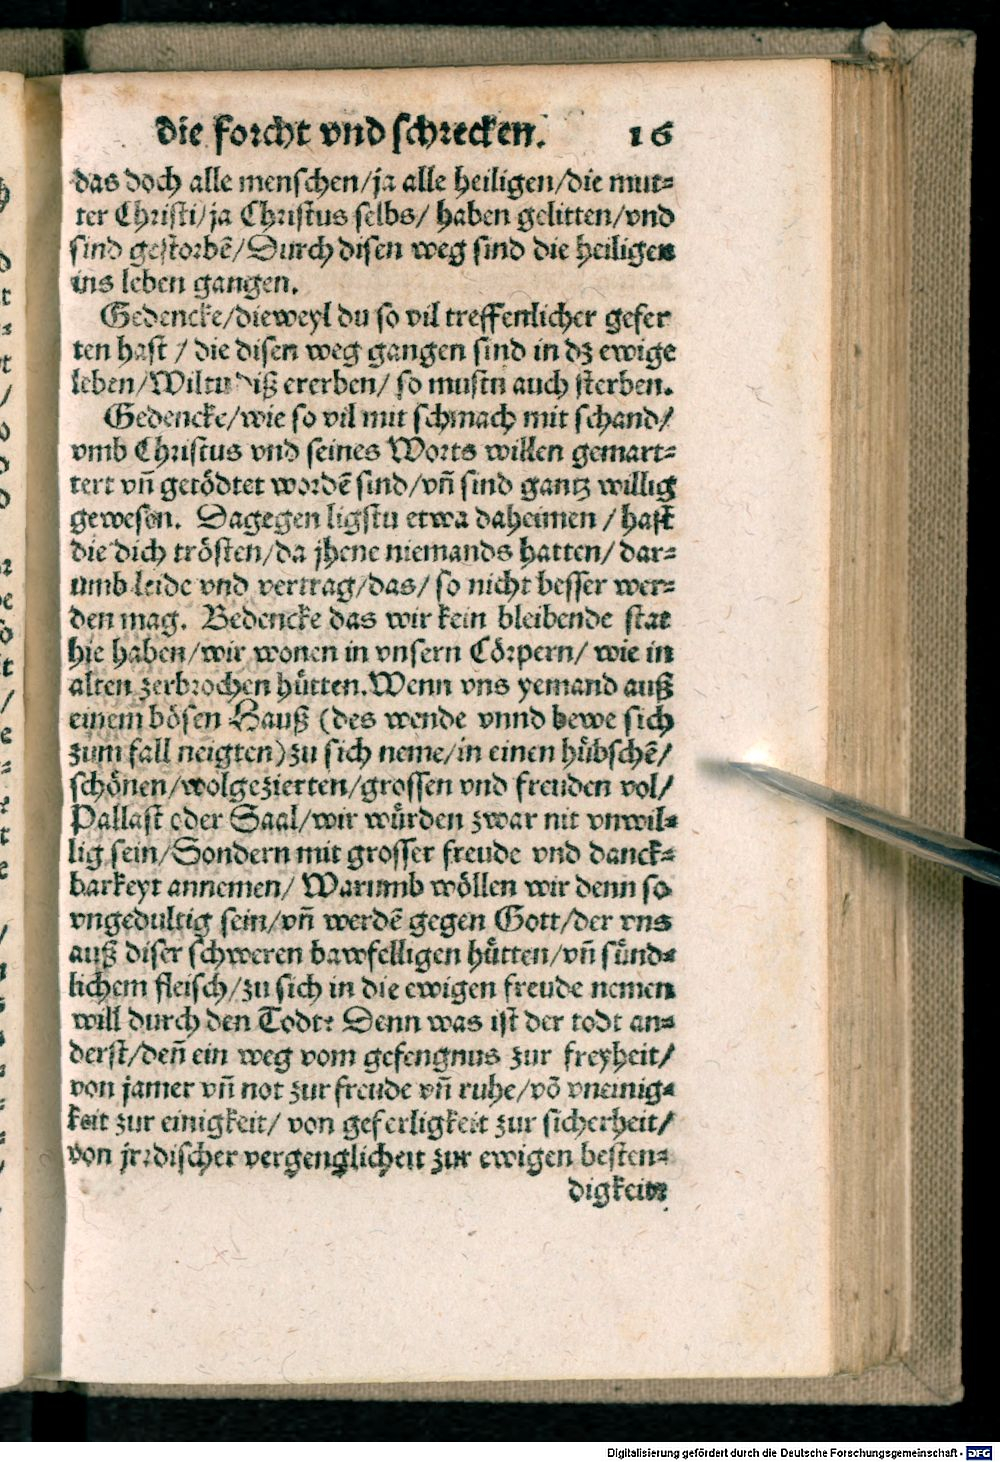 die forcht vnd schrecken. 16
das doch alle menschen/ja alle heiligen/die mut=
ter Christi/ja Christus selbs/ haben gelitten/vnd
sind gestorbē/Durch disen weg sind die heiligen
ins leben gangen.
Gedencke/dieweyl du so vil treffenlicher gefer
ten hast / die disen weg gangen sind in dz ewige
leben/Wiltu diß ererben/ so mustu auch sterben.
Gedencke/wie so vil mit schmach mit schand/
vmb Christus vnd seines Worts willen gemart=
tert vn̄ getödtet wordē sind/vn̄ sind gantz willig
gewesen. Dagegen ligstu etwa daheimen / hast
die dich trösten/da jhene niemands hatten/ dar=
umb leide vnd vertrag/das/ so nicht besser wer=
den mag. Bedencke das wir kein bleibende stat
hie haben/wir wonen in vnsern Cörpern/ wie in
alten zerbrochen hütten. Wenn vns yemand auß
einem bösen Hauß (des wende vnnd bewe sich
zum fall neigten) zu sich neme/in einen hübschē/
schönen/wolgezierten/grossen vnd freuden vol/
Pallast oder Saal/wir würden zwar nit vnwil=
lig sein/Sondern mit grosser freude vnd danck=
barkeyt annemen/ Warumb wöllen wir denn so
vngedultig sein/vn̄ werdē gegen Gott/der vns
auß diser schweren bawfelligen hütten/vn̄ sünd=
lichem fleisch/zu sich in die ewigen freude nemen
will durch den Todt? Denn was ist der todt an=
derst/deñ ein weg vom gefengnus zur freyheit/
von jamer vn̄ not zur freude vn̄ ruhe/vō vneinig=
keit zur einigkeit/ von geferligkeit zur sicherheit/
von jrrdischer vergenglicheit zur ewigen besten=
digkeit
Digitalisierung gefördert durch die Deutsche Forschungsgemeinschaft - DFG